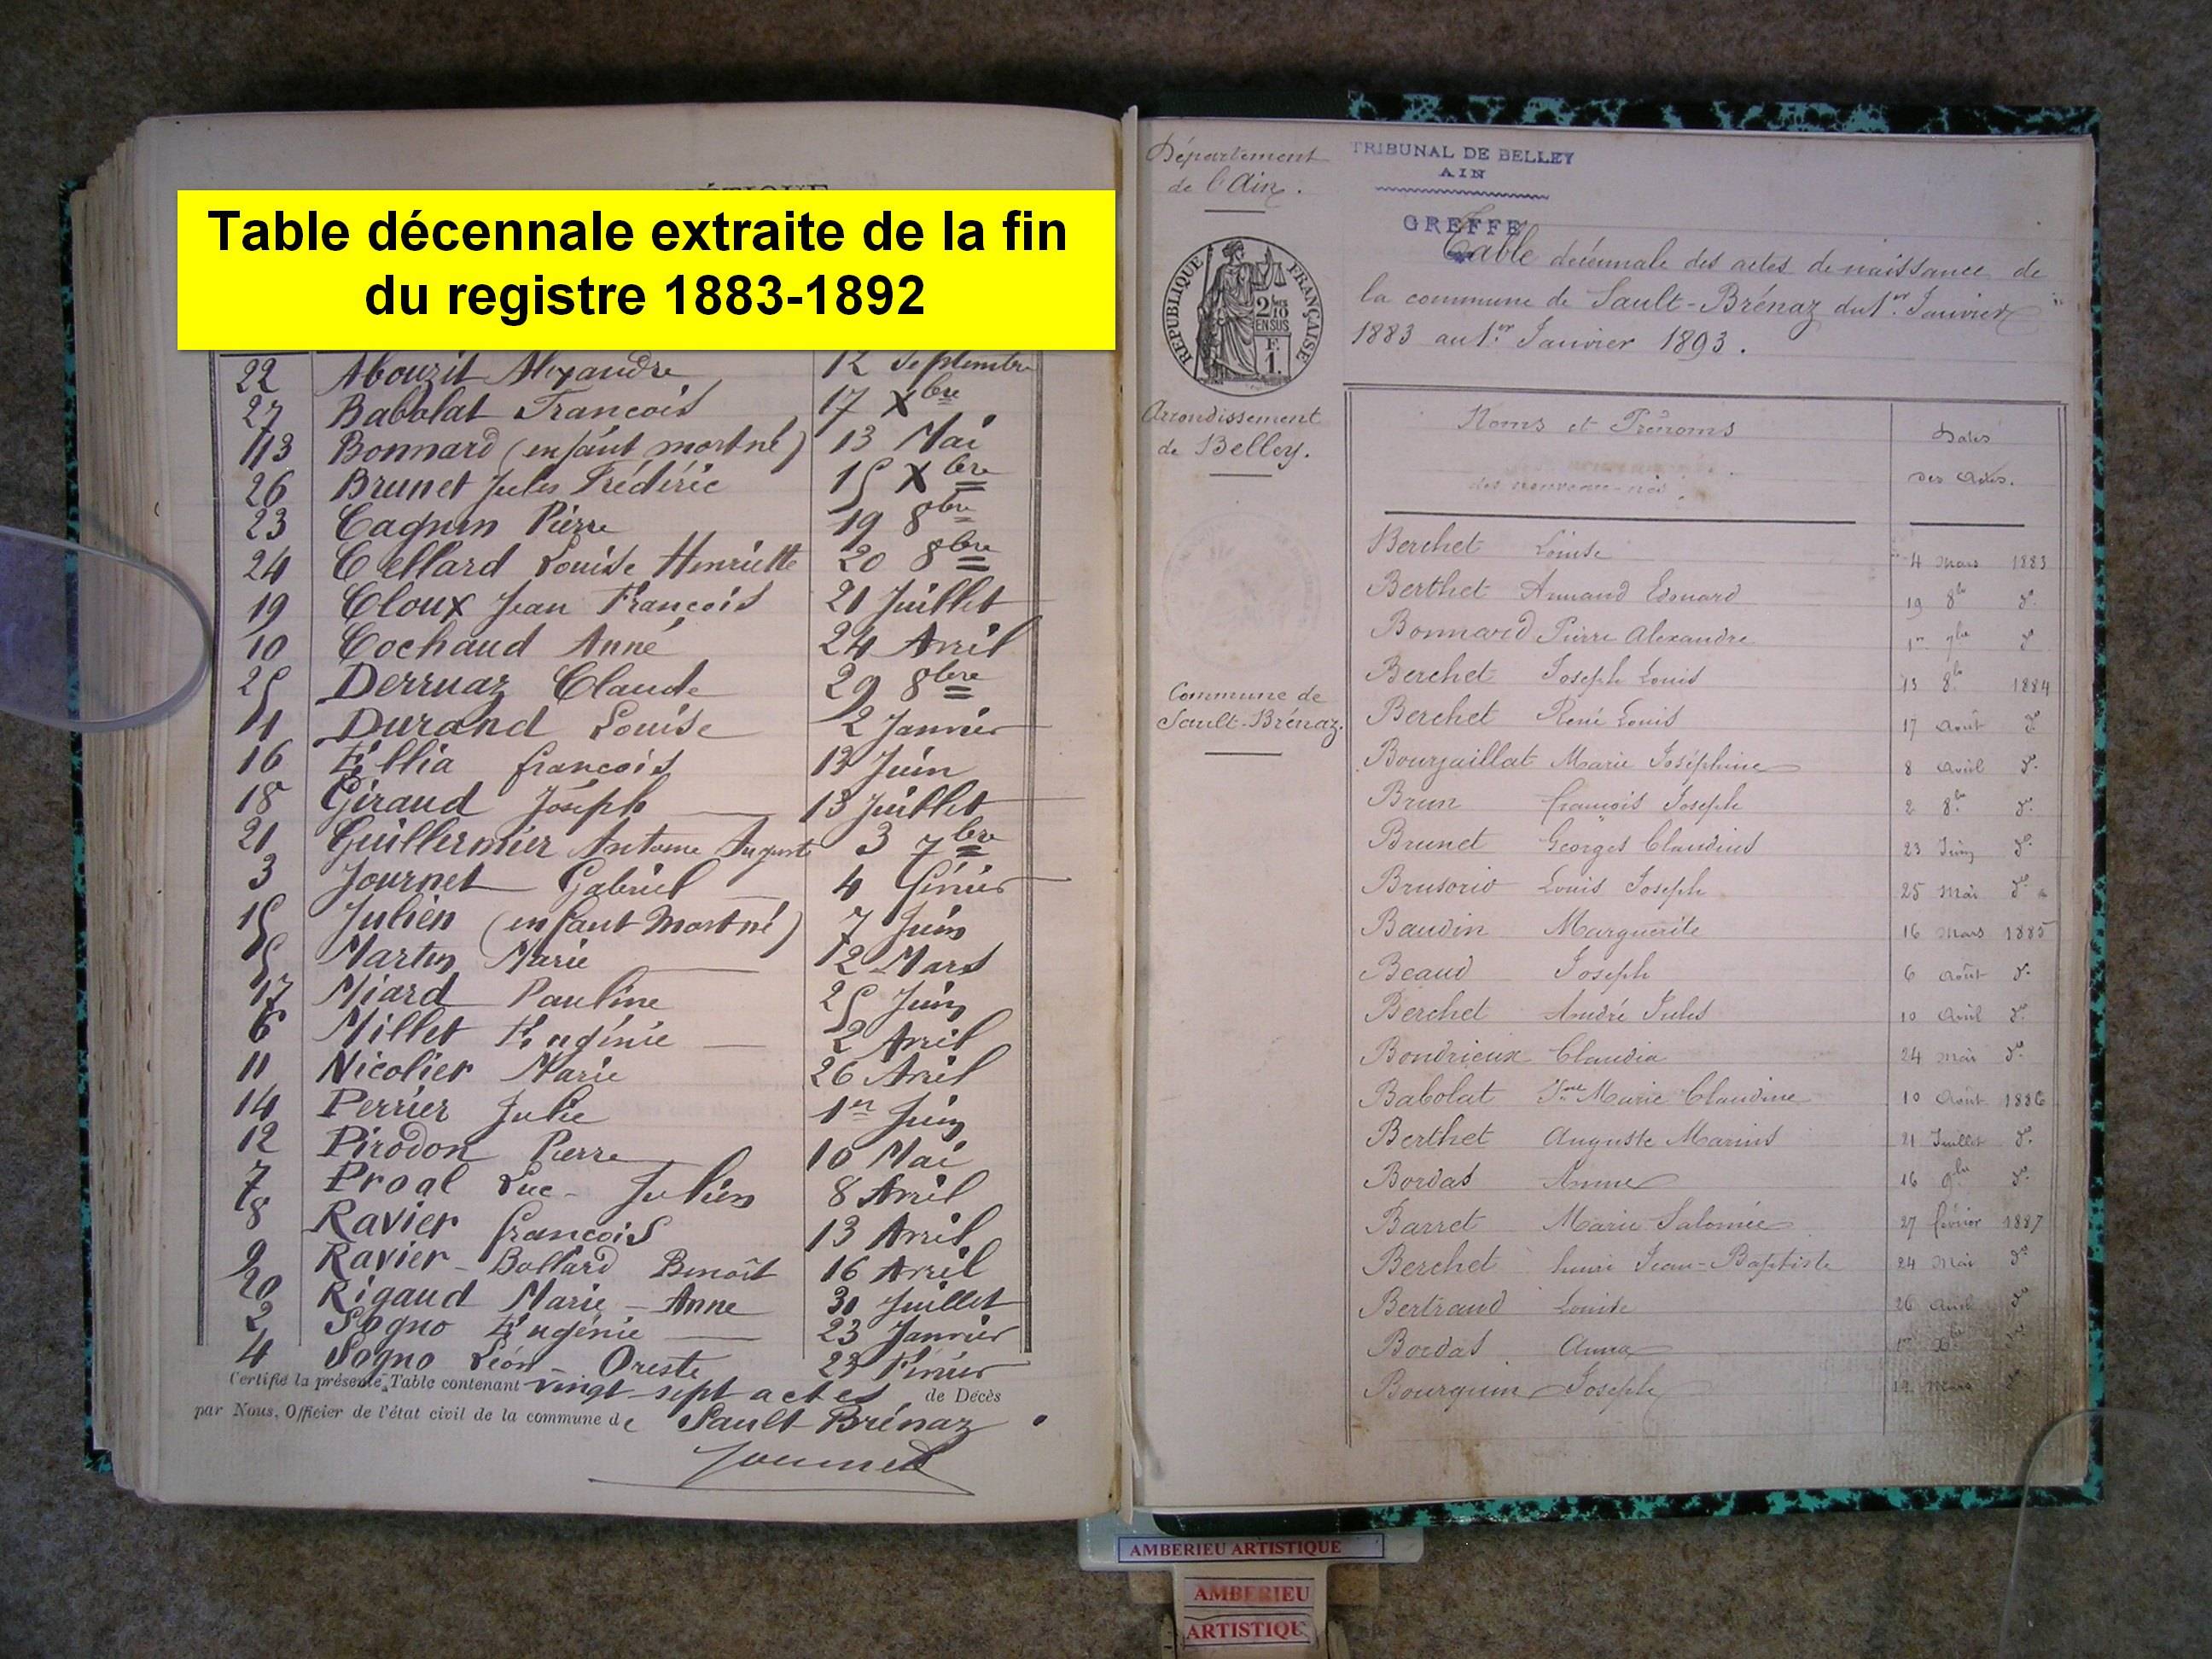 Table décennale extraite de la fin
du registre 1883-1892
22 Abouzit Alexandre 12 Septembre
27 Babolat François 17 Xbre
13 Bonnard (enfant mort né) 13 Mai
26 Brunet Jules Frédéric 15 Xbre
23 Cagnin Pierre 19 8bre
24 Cellard Louise Henriette 20 8bre
19 Cloux Jean François 21 Juillet
10 Cochaud Anne 24 Avril
25 Derruaz Claude 29 8bre
1 Durand Louise 2 Janvier
16 Ellia françois 13 Juin
18 Giraud Joseph 13 Juillet
21 Guillermier Antoine Auguste 3 7bre
3 Journet Gabriel 4 Février
15 Julien (enfant mort né) 7 Juin
5 Martin Marie 12 Mars
17 Miard Pauline 25 Juin
6 Millet Eugénie 2 Avril
11 Nicolier Marie 26 Avril
14 Perrier Julie 1er Juin
12 Pirodon Pierre 10 Mai
7 Proal Luc-Julien 8 Avril
8 Ravier françois 13 Avril
9 Ravier-Bollard Benoît 16 Avril
20 Rigaud Marie-Anne 30 Juillet
2 Sogno Eugénie 23 Janvier
4 Sogno Léon-Oreste 23 Février
Certifié la présente Table contenant vingt-sept actes de Décès
par Nous, Officier de l'état civil de la commune de Sault Brénaz
Journet
Département
de l'Ain.
RÉPUBLIQUE FRANÇAISE
2/10
EN SUS
F.
1.
Arrondissement
de Belley.
Commune de
Sault-Brénaz.
TRIBUNAL DE BELLEY
AIN
GREFFE
Table décennale des actes de naissance de
la commune de Sault-Brénaz du 1er Janvier
1883 au 1er Janvier 1893.
Noms et Prénoms
des nouveau-nés.
Dates
des Actes.
Berchet Louise 4 Mars 1883
Berthet Armand Edouard 19 8bre do
Bonnard Pierre Alexandre 1er 7bre do
Berchet Joseph Louis 13 8bre 1884
Berchet René Louis 17 Août do
Bourjaillat Marie Joséphine 8 Avril do
Brun françois Joseph 2 8bre do
Brunet Georges Claudius 23 Juin do
Brusorio Louis Joseph 25 Mai do
Baudin Marguerite 16 Mars 1885
Beaud Joseph 6 Août do
Berchet André Jules 10 Avril do
Bondrieux Claudia 24 Mai do
Babolat Marie Claudine 10 Août 1886
Berthet Auguste Marius 21 Juillet do
Bordas Anne 16 9bre do
Barret Marie Salomée 27 février 1887
Berchet henri Jean-Baptiste 24 Mai do
Bertrand Louise 26 Avril do
Bordas Anna 1er Xbre do
Bourguin Joseph 12 Mars do
AMBERIEU ARTISTIQUE
AMBERIEU
ARTISTIQUE